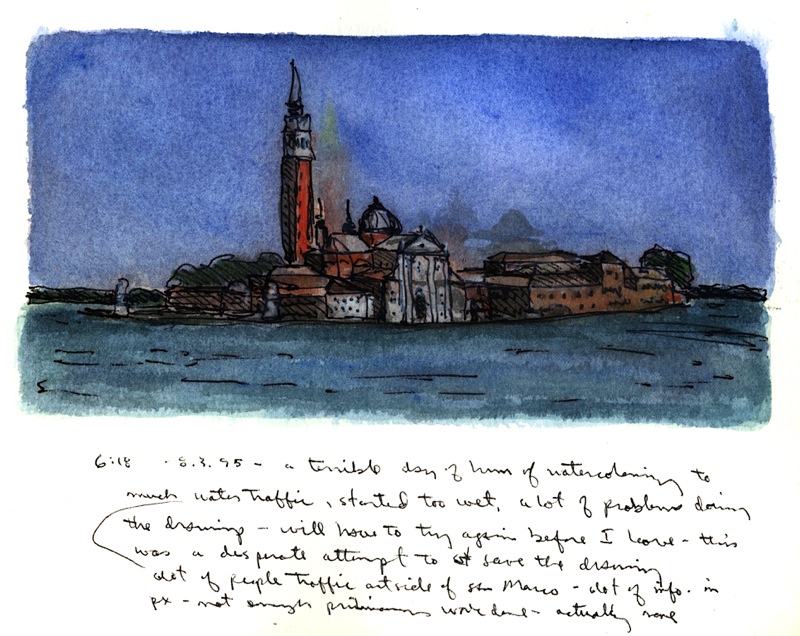 6:18 - 8.3.95 - a terrible day of watercoloring to
much water traffic, started too wet, a lot of problems doing
the drawing - will have to try again before I leave - this
was a desperate attempt to save the drawing
alot of people traffic outside of san Marco - alot of info. in
px - not enough work done - actually none